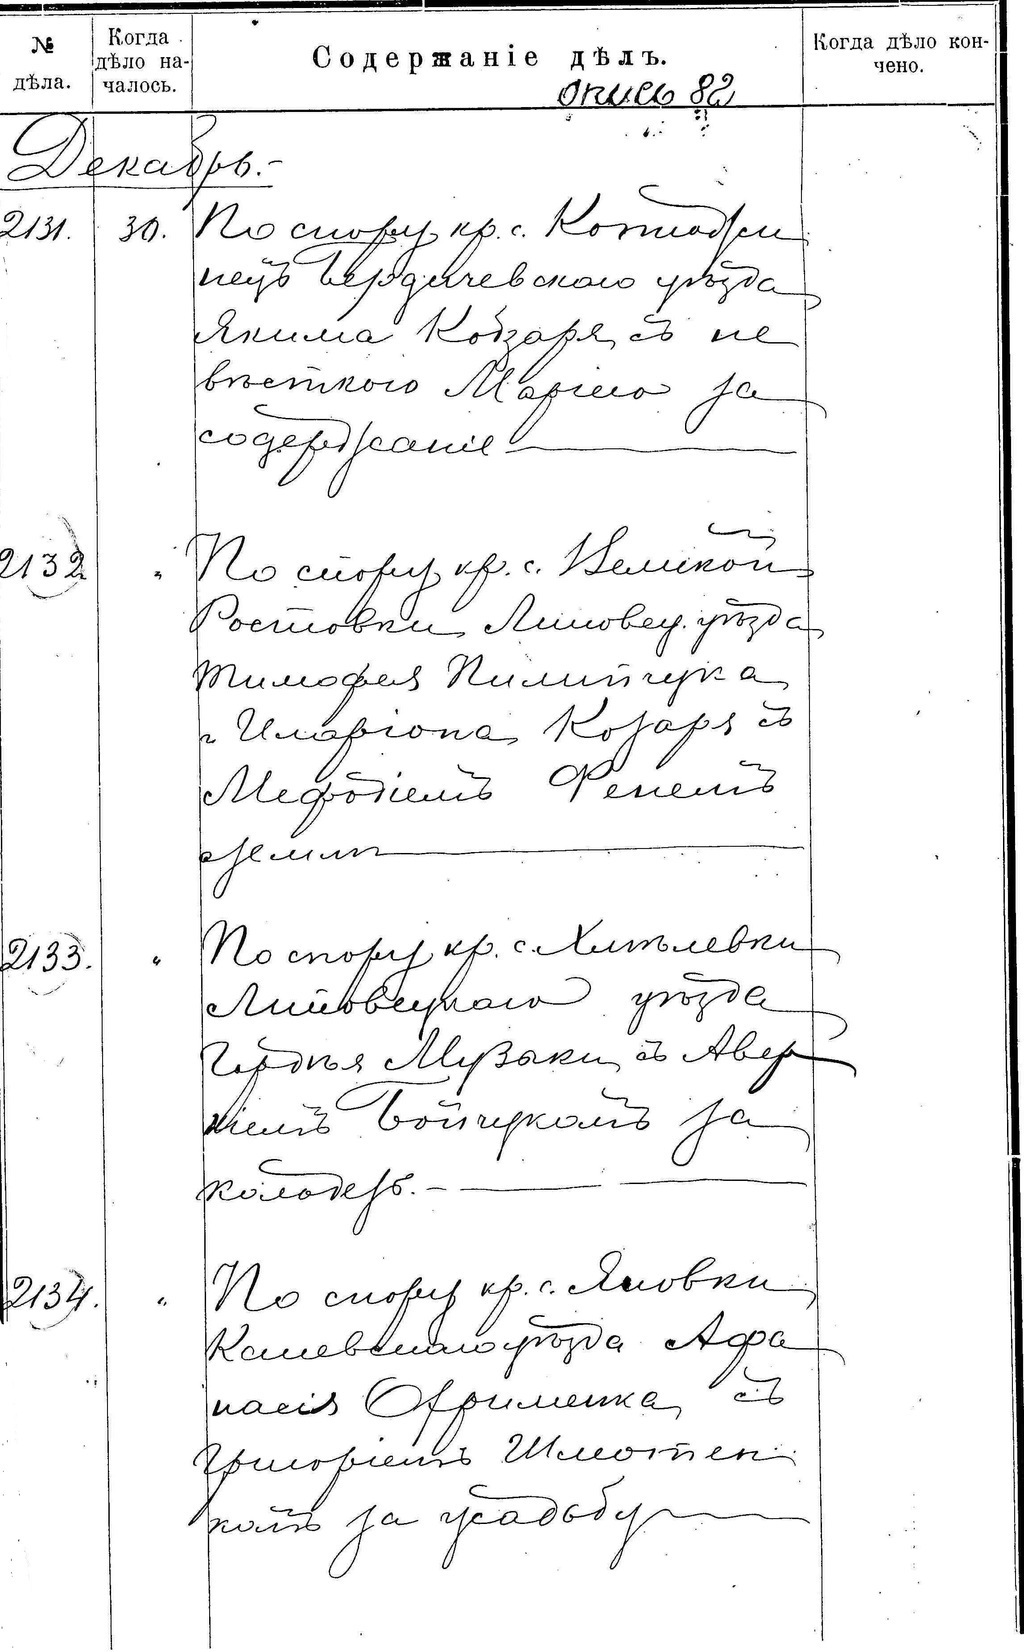 № дѣла.
Когда дѣло началось.
Содержаніе дѣлъ.
Когда дѣло кончено.
опись 82
Декабрь.-
2131. 30. По спору кр. с. Котлодзи
нецъ Бердичевскаго уѣзда
Якима Кобзаря съ не
вѣсткого Маріею за
содержаніе
2132 " По спору кр. с. Великой
Ростовки Липовец. уѣзда
Тимофея Пилипчука
и Иларіона Козаря съ
Мефодіемъ
землю
2133. " По спору кр. с.
Липовецкаго уѣзда
Гордѣя Музыки съ Авер
кіемъ Бойчукомъ за
колодезь.-
2134. " По спору кр. с. Яновки
Каневскаго уѣзда Афа
насія Охрименка съ
Григоріемъ
комъ за усадьбу